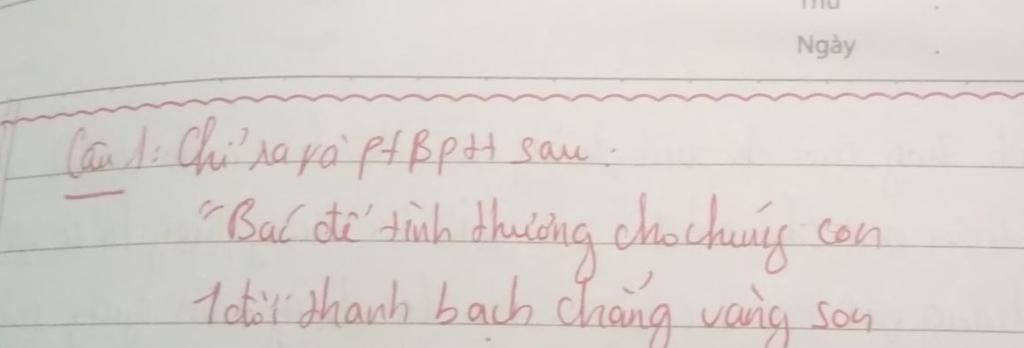 Thứ .
Ngày .
Câu 1: Chỉ ra và pt BPTT sau:
"Bác để tình thương cho chúng con
1 đời thanh bạch chẳng vàng son